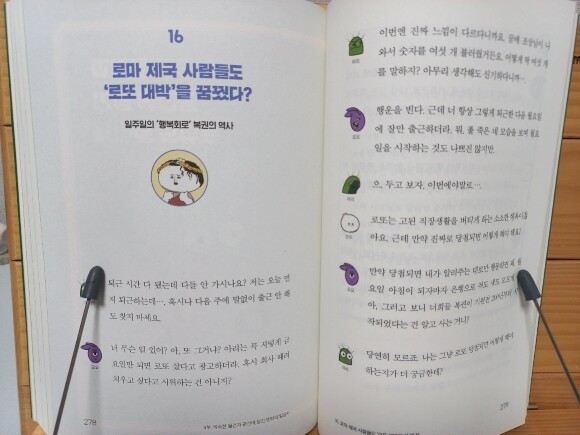 16
로마 제국 사람들도
‘로또 대박’을 꿈꿨다?
일주일의 ‘행복회로’ 복권의 역사
퇴근 시간 다 됐는데 다들 안 가시나요? 저는 오늘 먼
저 퇴근하는데…, 혹시나 다음 주에 말없이 출근 안 해
도 찾지 마세요.
너 무슨 일 있어? 아, 또 그거냐? 아래는 꼭 저렇게 금
요일만 되면 로또 샀다고 광고하더라. 혹시 회사 때려
치우고 싶다고 시위하는 건 아니지?
278
이번엔 진짜 느낌이 다르다니까요. 꿈에 조상님이 나
와서 숫자를 여섯 개 불러줬거든요. 어떻게 딱 여섯 개
를 말하지? 아무리 생각해도 신기하다니까….
행운을 빈다. 근데 너 항상 그렇게 퇴근한 다음 월요일
에 잘만 출근하더라. 뭐, 풀 죽은 네 모습을 보며 월요
일을 시작하는 것도 나쁘진 않지만.
으, 두고 보자. 이번에야말로….
로또는 고된 직장생활을 버티게 하는 소소한
아요. 근데 만약 진짜로 당첨되면 어떻게 해야 돼요?
만약 당첨되면 내가 알려주는 대로만 행동하면 돼. 월
요일 아침이 되자마자 은행으로
아, 그러고 보니 너희들 복권이 기원전
작되었다는 건 알고 사는 거니?
당연히 모르죠. 나는 그냥 로또 당첨되면 어떻게 해야
하는지가 더 궁금한데?
279